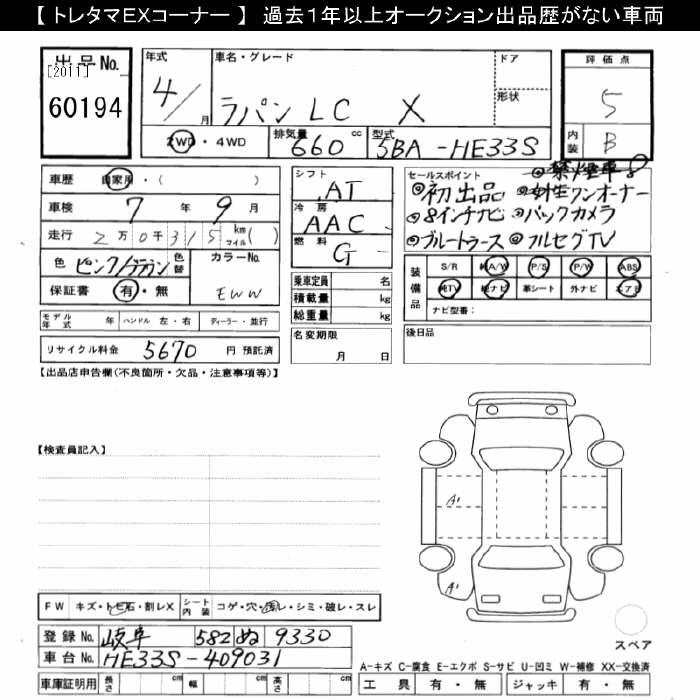 【 トレタマEXコーナー 】 過去１年以上オークション出品歴がない車両
出品No.
[2011]
60194
年式
4/
月
車名・グレード
ラパン LC X
ドア
形状
評価点
5
内装
B
2WD・4WD
排気量
660 cc
型式
5BA-HE33S
車歴 自家用・( )
車検 7 年 9 月
走行 2万0千315 km マイル( )
色
色替
カラーNo.
EWW
保証書 有・無
モデル年式 年 ハンドル 左・右 ディーラー・並行
リサイクル料金 5670 円 預託済
シフト
AT
冷房
AAC
燃料
G
乗車定員 名
積載量 kg
総重量 kg
名変期限
月 日
セールスポイント
◎禁煙車
◎初出品 ◎女性ワンオーナー
◎8インチナビ ◎バックカメラ
◎ブルートゥース ◎フルセグTV
装備品
S/R 純A/W P/S P/W ABS
純TV 純ナビ 革シート 外ナビ エアB
ナビ型番：
後日品
【出品店申告欄(不良箇所・欠品・注意事項等)】
【検査員記入】
A1
A1
スペア
FW キズ・トビ石・割レX
シート内装 コゲ・穴・汚レ・シミ・破レ・スレ
登録No. 岐阜 582 ぬ 9330
車台No. HE33S-409031
車庫証明用 長さ cm 幅 cm 高さ cm
A-キズ C-腐食 E-エクボ S-サビ U-凹ミ W-補修 XX-交換済
工具 有・無 ジャッキ 有・無